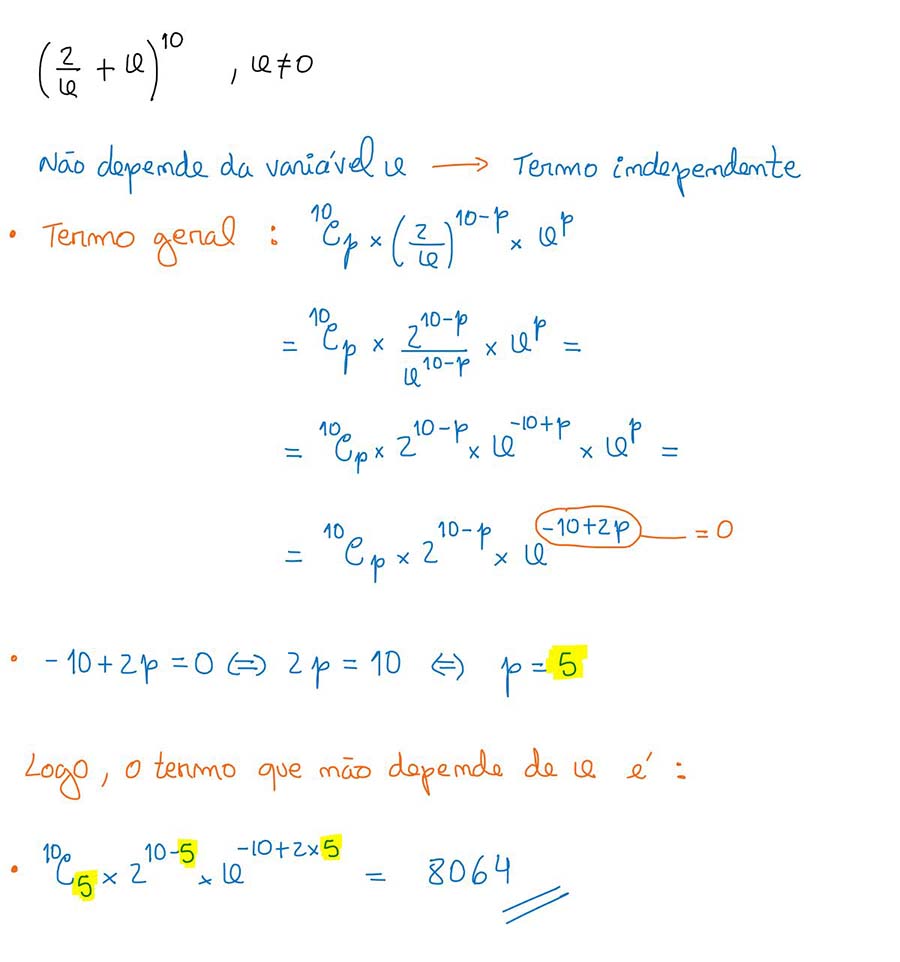 (2/x + x)^10 , x≠0
Não depende da variável x → Termo independente
• Termo geral : ¹⁰Cₚ × (2/x)^(10-p) × x^p
= ¹⁰Cₚ × 2^(10-p)/x^(10-p) × x^p =
= ¹⁰Cₚ × 2^(10-p) × x^(-10+p) × x^p =
= ¹⁰Cₚ × 2^(10-p) × x^(-10+2p) = 0
• -10+2p=0 ⇔ 2p=10 ⇔ p=5
Logo, o termo que não depende de x é :
• ¹⁰C₅ × 2^(10-5) × x^(-10+2×5) = 8064